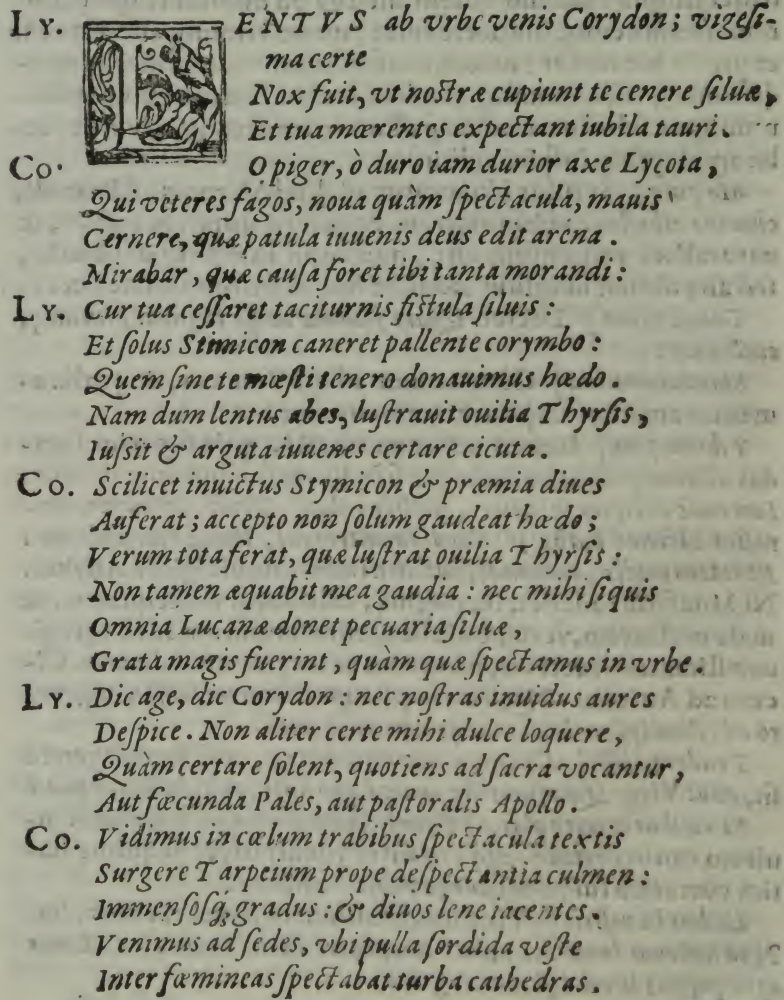 LY. LENTVS ab vrbe venis Corydon; vigesi-
ma certe
Nox fuit, vt nostræ cupiunt te cenere siluæ,
Et tua mœrentes expectant iubila tauri.
Co. O piger, ò duro iam durior axe Lycota,
Qui veteres fagos, noua quàm spectacula, mauis
Cernere, quæ patula iuuenis deus edit arena.
Mirabar, quæ causa foret tibi tanta morandi:
LY. Cur tua cessaret taciturnis fistula siluis:
Et solus Stimicon caneret pallente corymbo:
Quem sine te mæsti tenero donauimus hœdo.
Nam dum lentus abes, lustrauit ouilia Thyrsis,
Iussit & arguta iuuenes certare cicuta.
Co. Scilicet inuictus Stymicon & præmia diues
Auferat; accepto non solum gaudeat hœdo;
Verum tota ferat, quæ lustrat ouilia Thyrsis:
Non tamen æquabit mea gaudia: nec mihi siquis
Omnia Lucanæ donet pecuaria siluæ,
Grata magis fuerint, quàm quæ spectamus in vrbe.
LY. Dic age, dic Corydon: nec nostras inuidus aures
Despice. Non aliter certe mihi dulce loquere,
Quàm certare solent, quotiens ad sacra vocantur,
Aut fœcunda Pales, aut pastoralis Apollo.
Co. Vidimus in cœlum trabibus spectacula textis
Surgere Tarpeium prope despectantia culmen:
Immensosq́; gradus: & diuos lene iacentes.
Venimus ad sedes, vbi pulla sordida veste
Inter fœmineas spectabat turba cathedras.